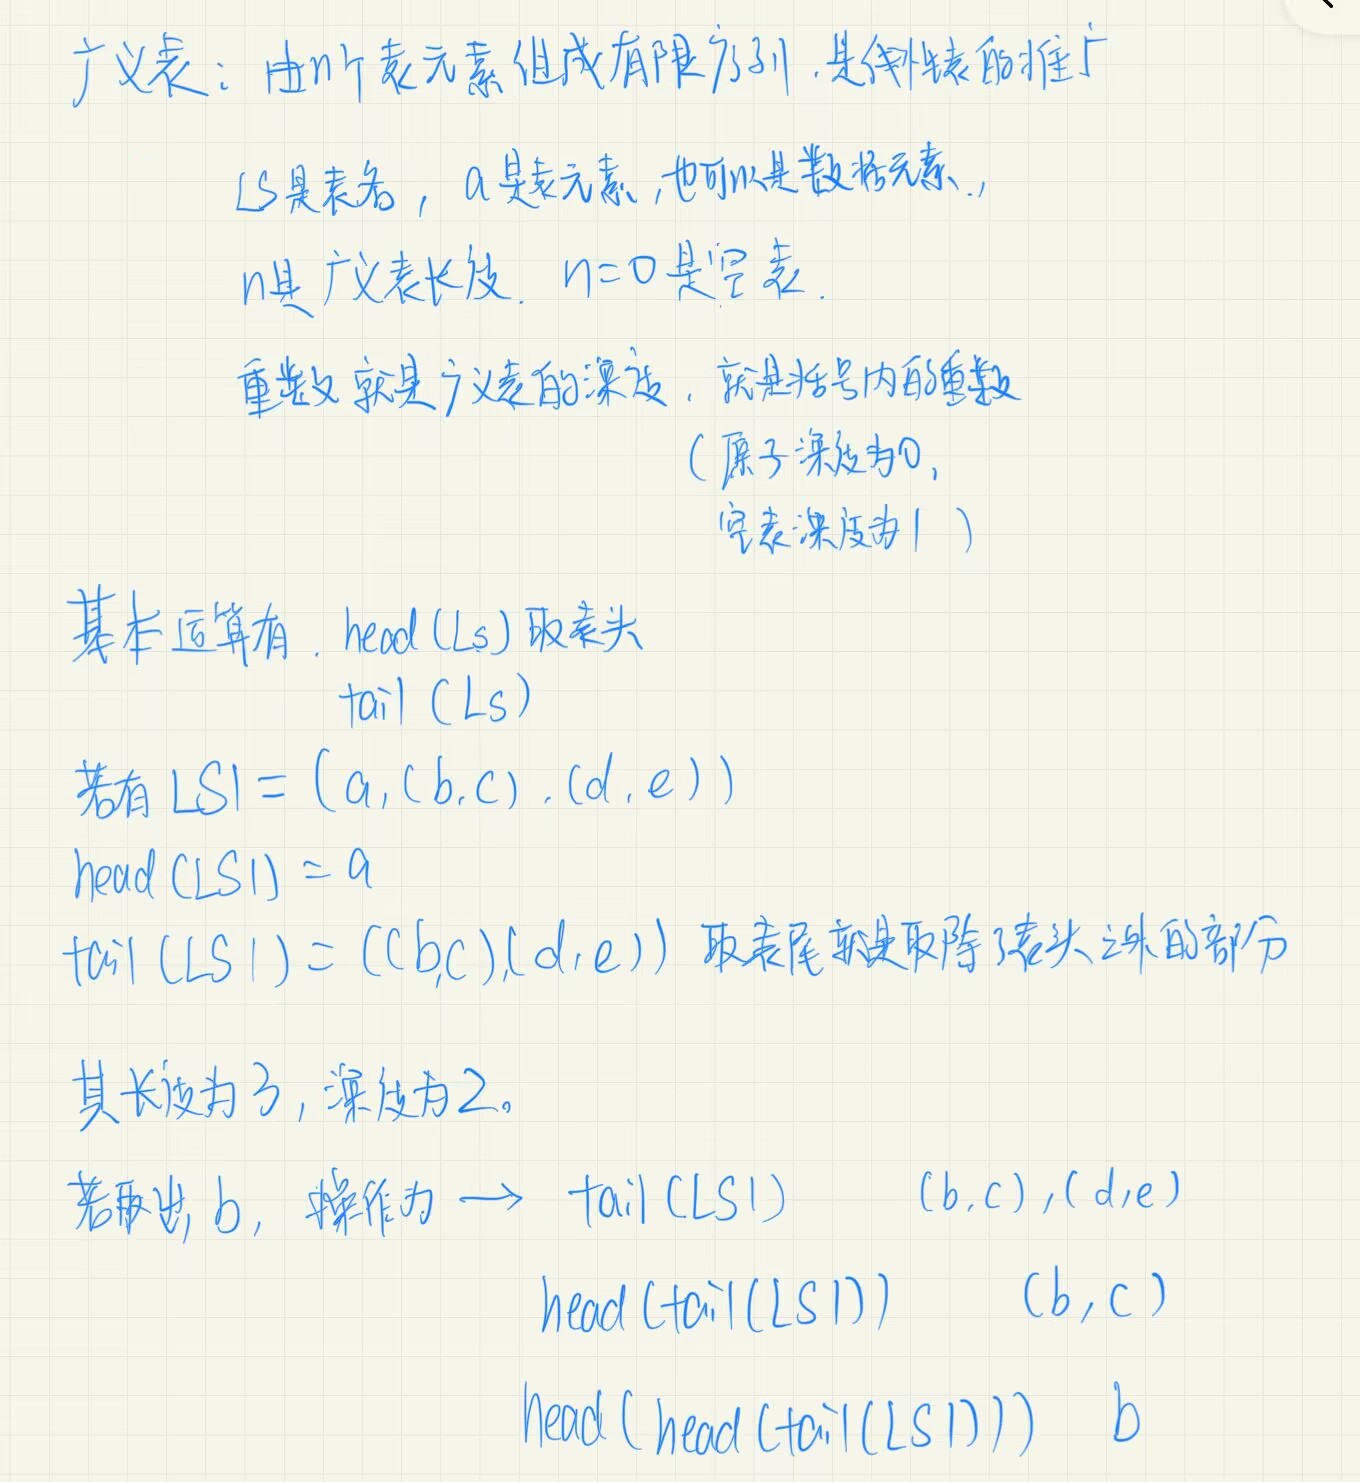 广义表：由n个表元素组成有限序列，是线性表的推广
LS是表名，a是表元素，也可以是数据元素，
n是广义表长度．n=0是空表．
重数就是广义表的深度．就是括号内的重数
（原子深度为0，
空表深度为1）
基本运算有．head(Ls)取表头
tail(Ls)
若有LS1=(a,(b,c),(d,e))
head(LS1)=a
tail(LS1)=((b,c),(d,e)) 取表尾就是取除了表头之外的部分
其长度为3，深度为2。
若取出b，操作为→ tail(LS1) (b,c),(d,e)
head(tail(LS1)) (b,c)
head(head(tail(LS1))) b